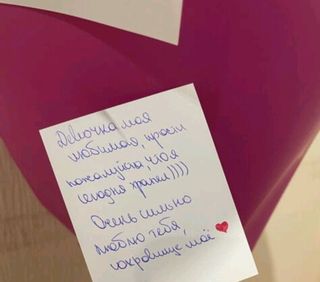 Девочка моя
любимая, прости
пожалуйста, что я
сегодня храпел))))
Очень сильно
люблю тебя,
сокровище моё